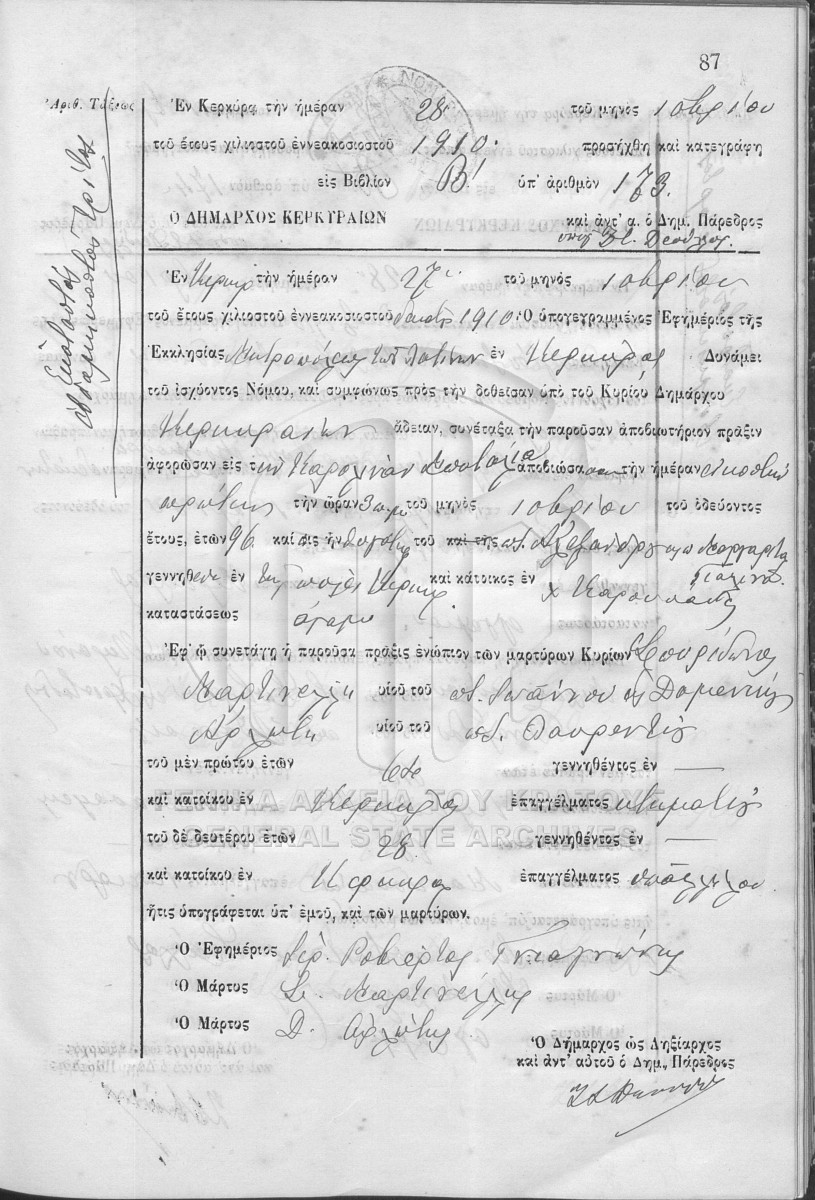 87
Ἀριθ. Τάξεως
Ἑκατοστὸς
Ἑβδομηκοστὸς Τρίτος
Ἐν Κερκύρᾳ τὴν ἡμέραν 28 τοῦ μηνὸς 1οβρίου
τοῦ ἔτους χιλιοστοῦ ἐννεακοσιοστοῦ 1910. προσήχθη καὶ κατεγράφη
εἰς Βιβλίον Β! ὑπ' ἀριθμὸν 173.
Ὁ ΔΗΜΑΡΧΟΣ ΚΕΡΚΥΡΑΙΩΝ καὶ ἀντ' α. ὁ Δημ. Πάρεδρος
Ἐν Κερκρ τὴν ἡμέραν 27 τοῦ μηνὸς 1οβρίου
τοῦ ἔτους χιλιοστοῦ ἐννεακοσιοστοῦ 1910 Ὁ ὑπογεγραμμένος Ἐφημέριος τῆς
Ἐκκλησίας Μητροπόλεως τῶν Λατίνων ἐν Κερκύρας Δυνάμει
τοῦ ἰσχύοντος Νόμου, καὶ συμφώνως πρὸς τὴν δοθεῖσαν ὑπὸ τοῦ Κυρίου Δημάρχου
Κερκυραίων ἄδειαν, συνέταξα τὴν παροῦσαν ἀποβιωτήριον πρᾶξιν
ἀφορῶσαν εἰς τὴν Καρολίναν ἀποβιώσασαν τὴν ἡμέραν εἰκοστὴν
πρώτην τὴν ὥραν 3 π.μ. τοῦ μηνὸς 1οβρίου τοῦ ὁδεύοντος
ἔτους, ἐτῶν 96 καὶ εἰς ἣν θυγάτηρ τοῦ καὶ τῆς π. Ἀλεξάνδρου Μαργαρίτα
γεννηθεῖσα ἐν τῇ πόλει Κερκρ καὶ κάτοικος ἐν
καταστάσεως ἄγαμο
Ἐφ' ᾧ συνετάγη ἡ παροῦσα πρᾶξις ἐνώπιον τῶν μαρτύρων Κυρίων Σπυρίδωνα
Μαρτινέλλη υἱοῦ τοῦ π. Ἰωάννου Δομενίκ
Ἀρλώτη υἱοῦ τοῦ π. Λαυρεντίου
τοῦ μὲν πρώτου ἐτῶν γεννηθέντος ἐν —
καὶ κατοίκου ἐν Κερκύρᾳ ἐπαγγέλματος κτηματίου
τοῦ δὲ δευτέρου ἐτῶν 28 γεννηθέντος ἐν —
καὶ κατοίκου ἐν Κερκύρᾳ ἐπαγγέλματος ὑπαλλήλου
ἥτις ὑπογράφεται ὑπ' ἐμοῦ, καὶ τῶν μαρτύρων.
Ὁ Ἐφημέριος Ροβέρτος
Ὁ Μάρτυς Σ. Μαρτινέλλης
Ὁ Μάρτυς Δ. Ἀρλώτης
Ὁ Δήμαρχος ὡς Ληξίαρχος
καὶ ἀντ' αὐτοῦ ὁ Δημ. Πάρεδρος
ΓΕΝΙΚΑ ΑΡΧΕΙΑ ΤΟΥ ΚΡΑΤΟΥΣ
GENERAL STATE ARCHIVES